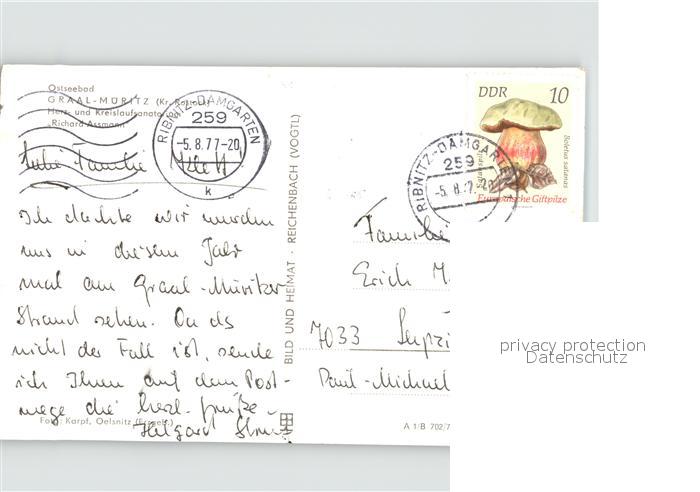 Ostseebad
GRAAL-MÜRITZ (Kr. Rostock)
Herz- und Kreislaufsanatorium
„Richard Assmann"
RIBNITZ-DAMGARTEN
259
-5.8.77-20
k
Liebe Familie
Ich dachte wir wurden
uns in diesem Jahr
mal am Graal-Müritzer
Strand sehen. Da das
nicht der Fall ist, sende
ich Ihnen auf dem Post-
wege die herzl. Grüße.
Helgard
Foto: Karpf, Oelsnitz (Erzgeb.)
BILD UND HEIMAT · REICHENBACH (VOGTL)
DDR 10
Satanspilz
Boletus satanas
Europäische Giftpilze
RIBNITZ-DAMGARTEN
259
-5.8.77-20
Familie
Erich
7033 Leipzi
Paul-Michael
A 1/B 702/7
privacy protection
Datenschutz